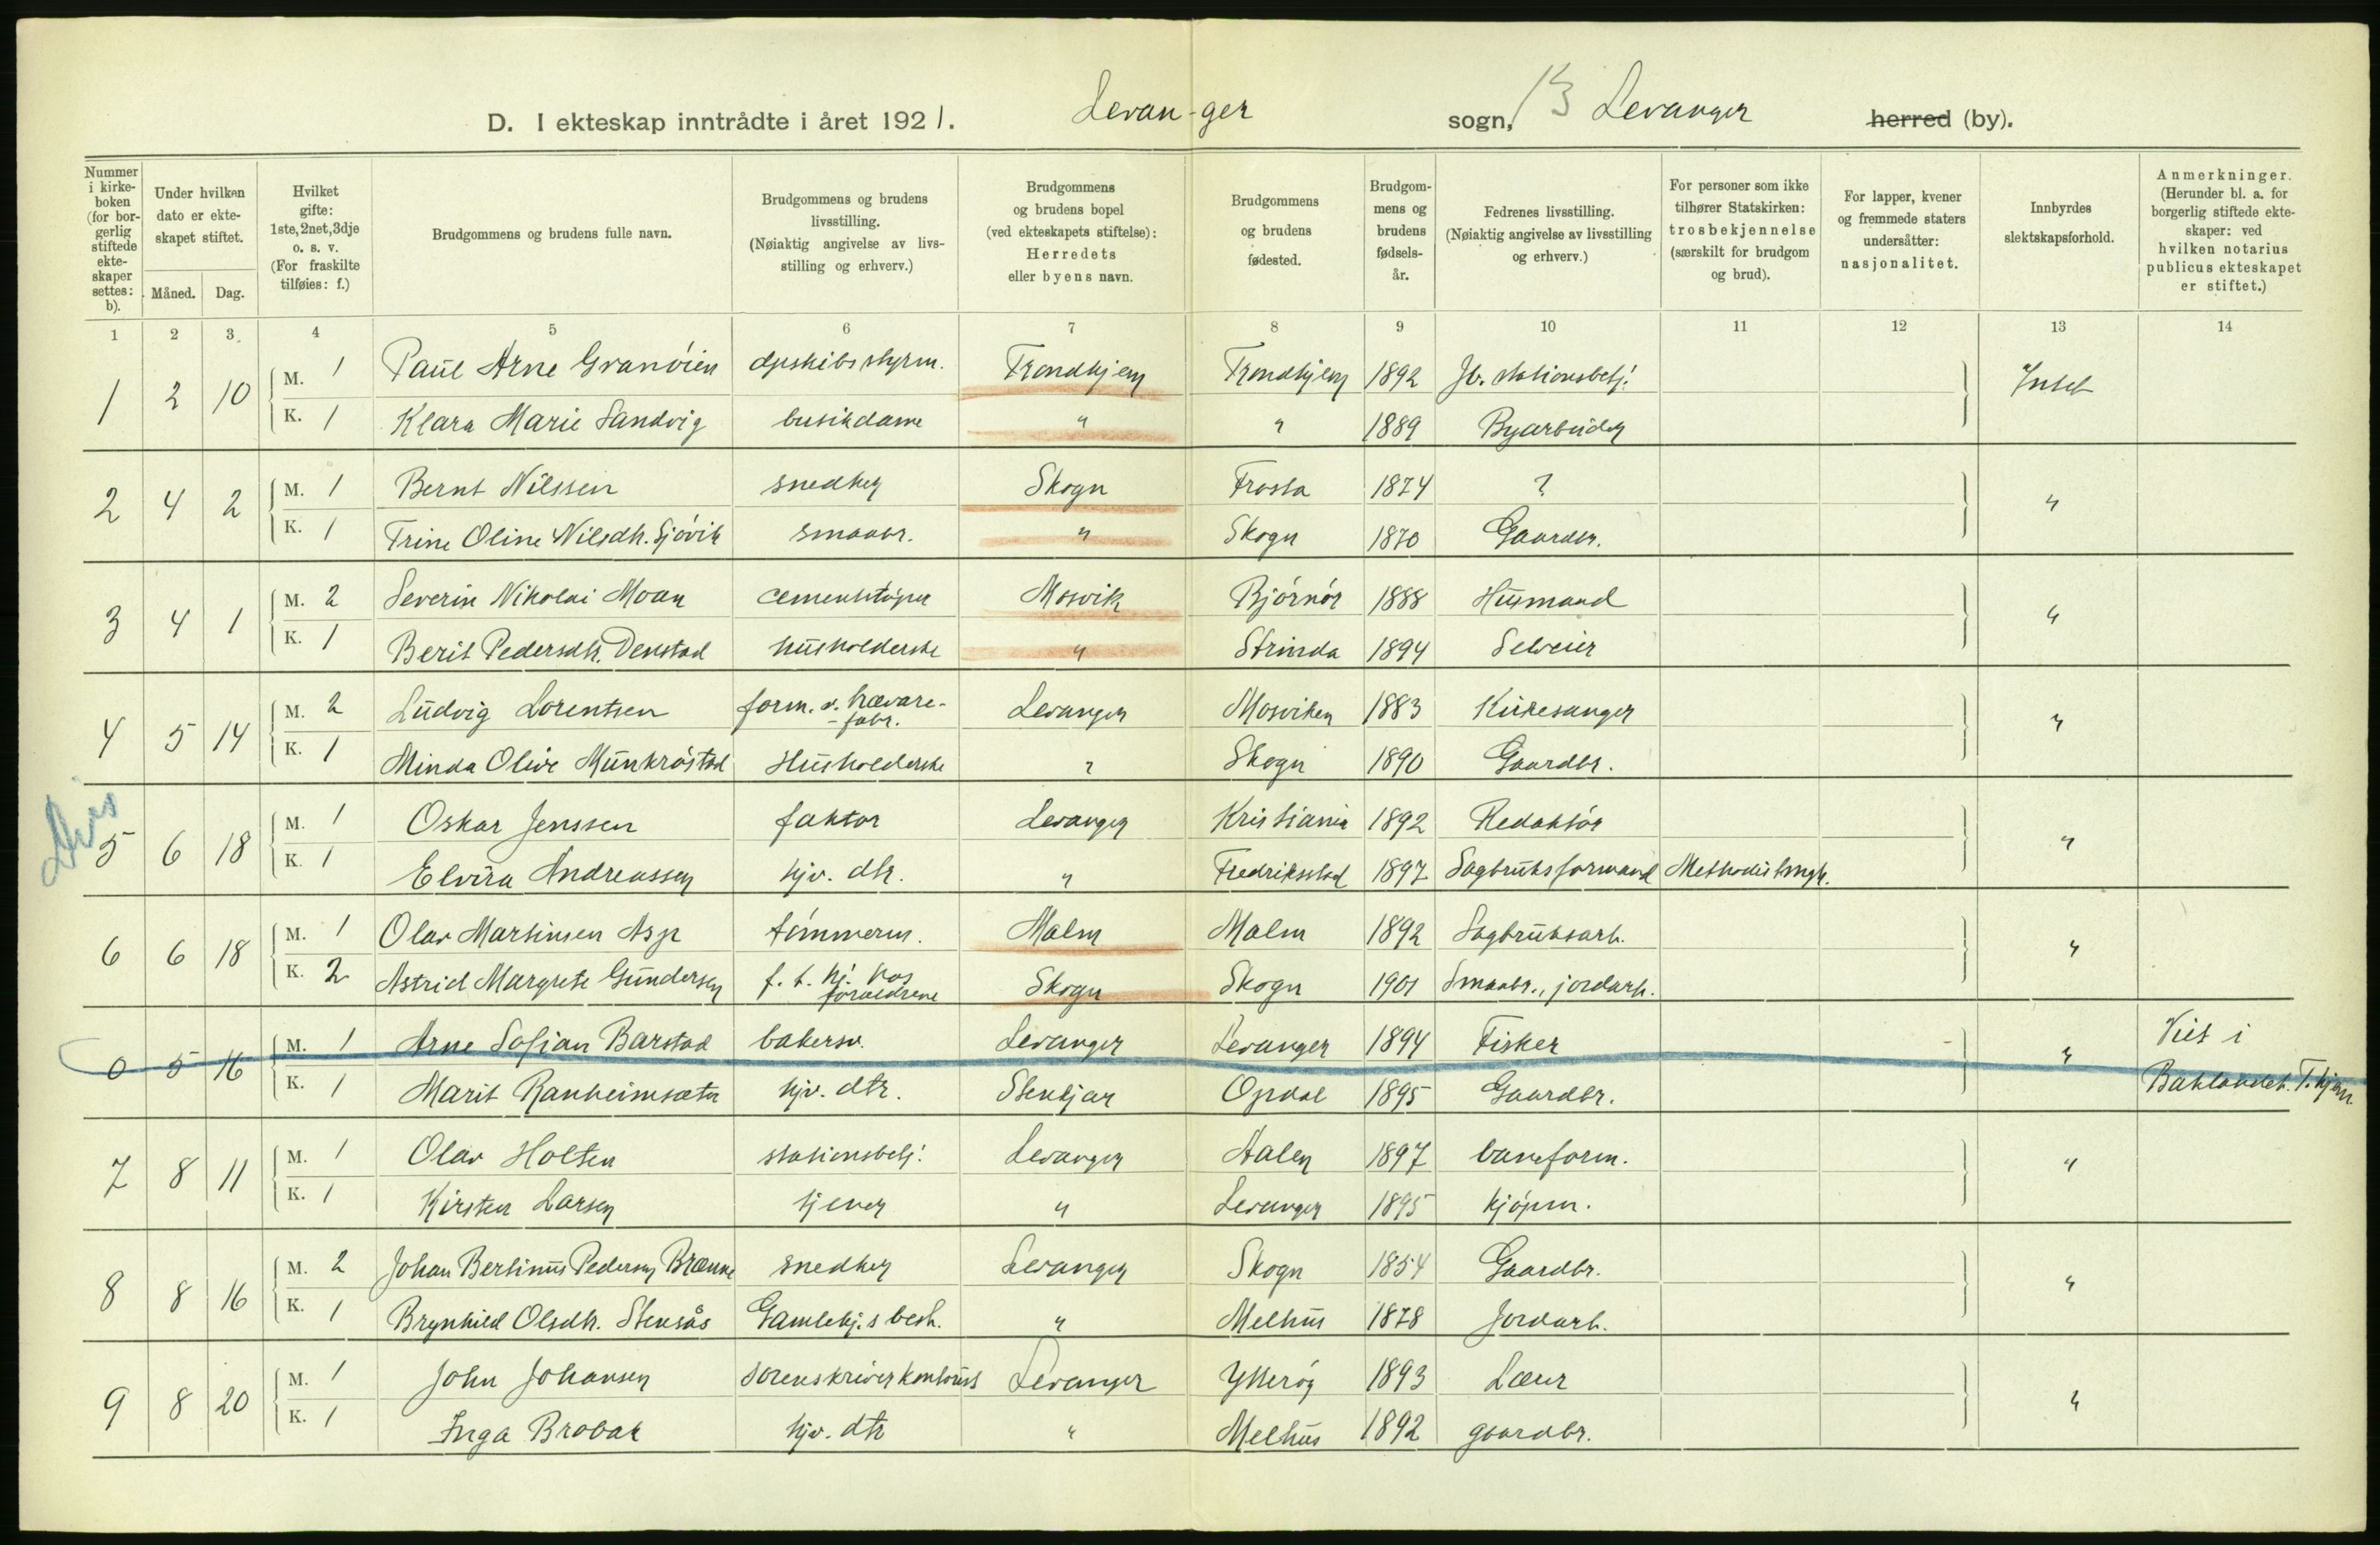 D. I ekteskap inntrådte i året 1921. Levanger sogn, 13 Levanger herred (by).
Nummer i kirkeboken (for borgerlig stiftede ekteskaper settes: b). Under hvilken dato er ekteskapet stiftet. Måned. Dag. Hvilket gifte: 1ste, 2net, 3dje o. s. v. (For fraskilte tilføies: f.) Brudgommens og brudens fulle navn. Brudgommens og brudens livsstilling. (Nøiaktig angivelse av livsstilling og erhverv.) Brudgommens og brudens bopel (ved ekteskapets stiftelse): Herredets eller byens navn. Brudgommens og brudens fødested. Brudgommens og brudens fødselsår. Fedrenes livsstilling. (Nøiaktig angivelse av livsstilling og erhverv.) For personer som ikke tilhører Statskirken: trosbekjennelse (særskilt for brudgom og brud). For lapper, kvener og fremmede staters undersåtter: nasjonalitet. Innbyrdes slektskapsforhold. Anmerkninger. (Herunder bl. a. for borgerlig stiftede ekteskaper: ved hvilken notarius publicus ekteskapet er stiftet.)
1 2 3. 4 5 6 7 8 9 10 11 12 13 14
1 2 10 M. 1 Paul Arne Granøien dpskibsstyrm. Trondhjem Trondhjem 1892 Jb. stationsbetj. Intet
K. 1 Klara Marie Sandvig butikdame " " 1889 Byarbeider
2 4 2 M. 1 Bernt Nilssen snedker Skogn Frosta 1874 ? "
K. 1 Trine Oline Nilsdtr. Sjøvik smaabr. " Skogn 1870 Gaardbr.
3 4 1 M. 2 Severin Nikolai Moan cementstøper Mosvik Bjørnør 1888 Husmand "
K. 1 Berit Pedersdtr. Denstad husholderske " Strinda 1894 Selveier
4 5 14 M. 2 Ludvig Lorentsen form. v. trævare-
-fabr. Levanger Mosviken 1883 Kirkesanger "
K. 1 Minda Olive Munkrøstad Husholderske " Skogn 1890 Gaardbr.
5 6 18 M. 1 Oskar Jenssen faktor Levanger Kristiania 1892 Redaktør "
K. 1 Elvira Andreassen hjv. dtr. " Fredrikstad 1897 Sagbruksformand
6 6 18 M. 1 Olav Martinsen Asp tømmerm. Malm Malm 1892 Sagbruksarb. "
K. 2 Astrid Margrete Gundersen f. t. hj. hos
forældrene Skogn Skogn 1901 Smaabr., jordarb.
0 5 16 M. 1 Arne Sofian Barstad bakersv. Levanger Levanger 1894 Fisker " Viet i
K. 1 Marit Ranheimsæter hjv. dtr. Stenkjær Opdal 1895 Gaardbr. Baklandet. T.hjem
7 8 11 M. 1 Olav Holten stationsbetj. Levanger Aalen 1897 baneform. "
K. 1 Kirsten Larsen tjener " Levanger 1895 kjøpm.
8 8 16 M. 2 Johan Bertinus Pedersen Brænne snedker Levanger Skogn 1854 Gaardbr. "
K. 1 Brynhild Olsdtr. Stensås Gamlehj.s best. " Melhus 1878 Jordarb.
9 8 20 M. 1 John Johansen Levanger Ytterøy 1893 Lærer "
K. 1 Inga Brobak hjv. dtr " Melhus 1892 gaardbr.